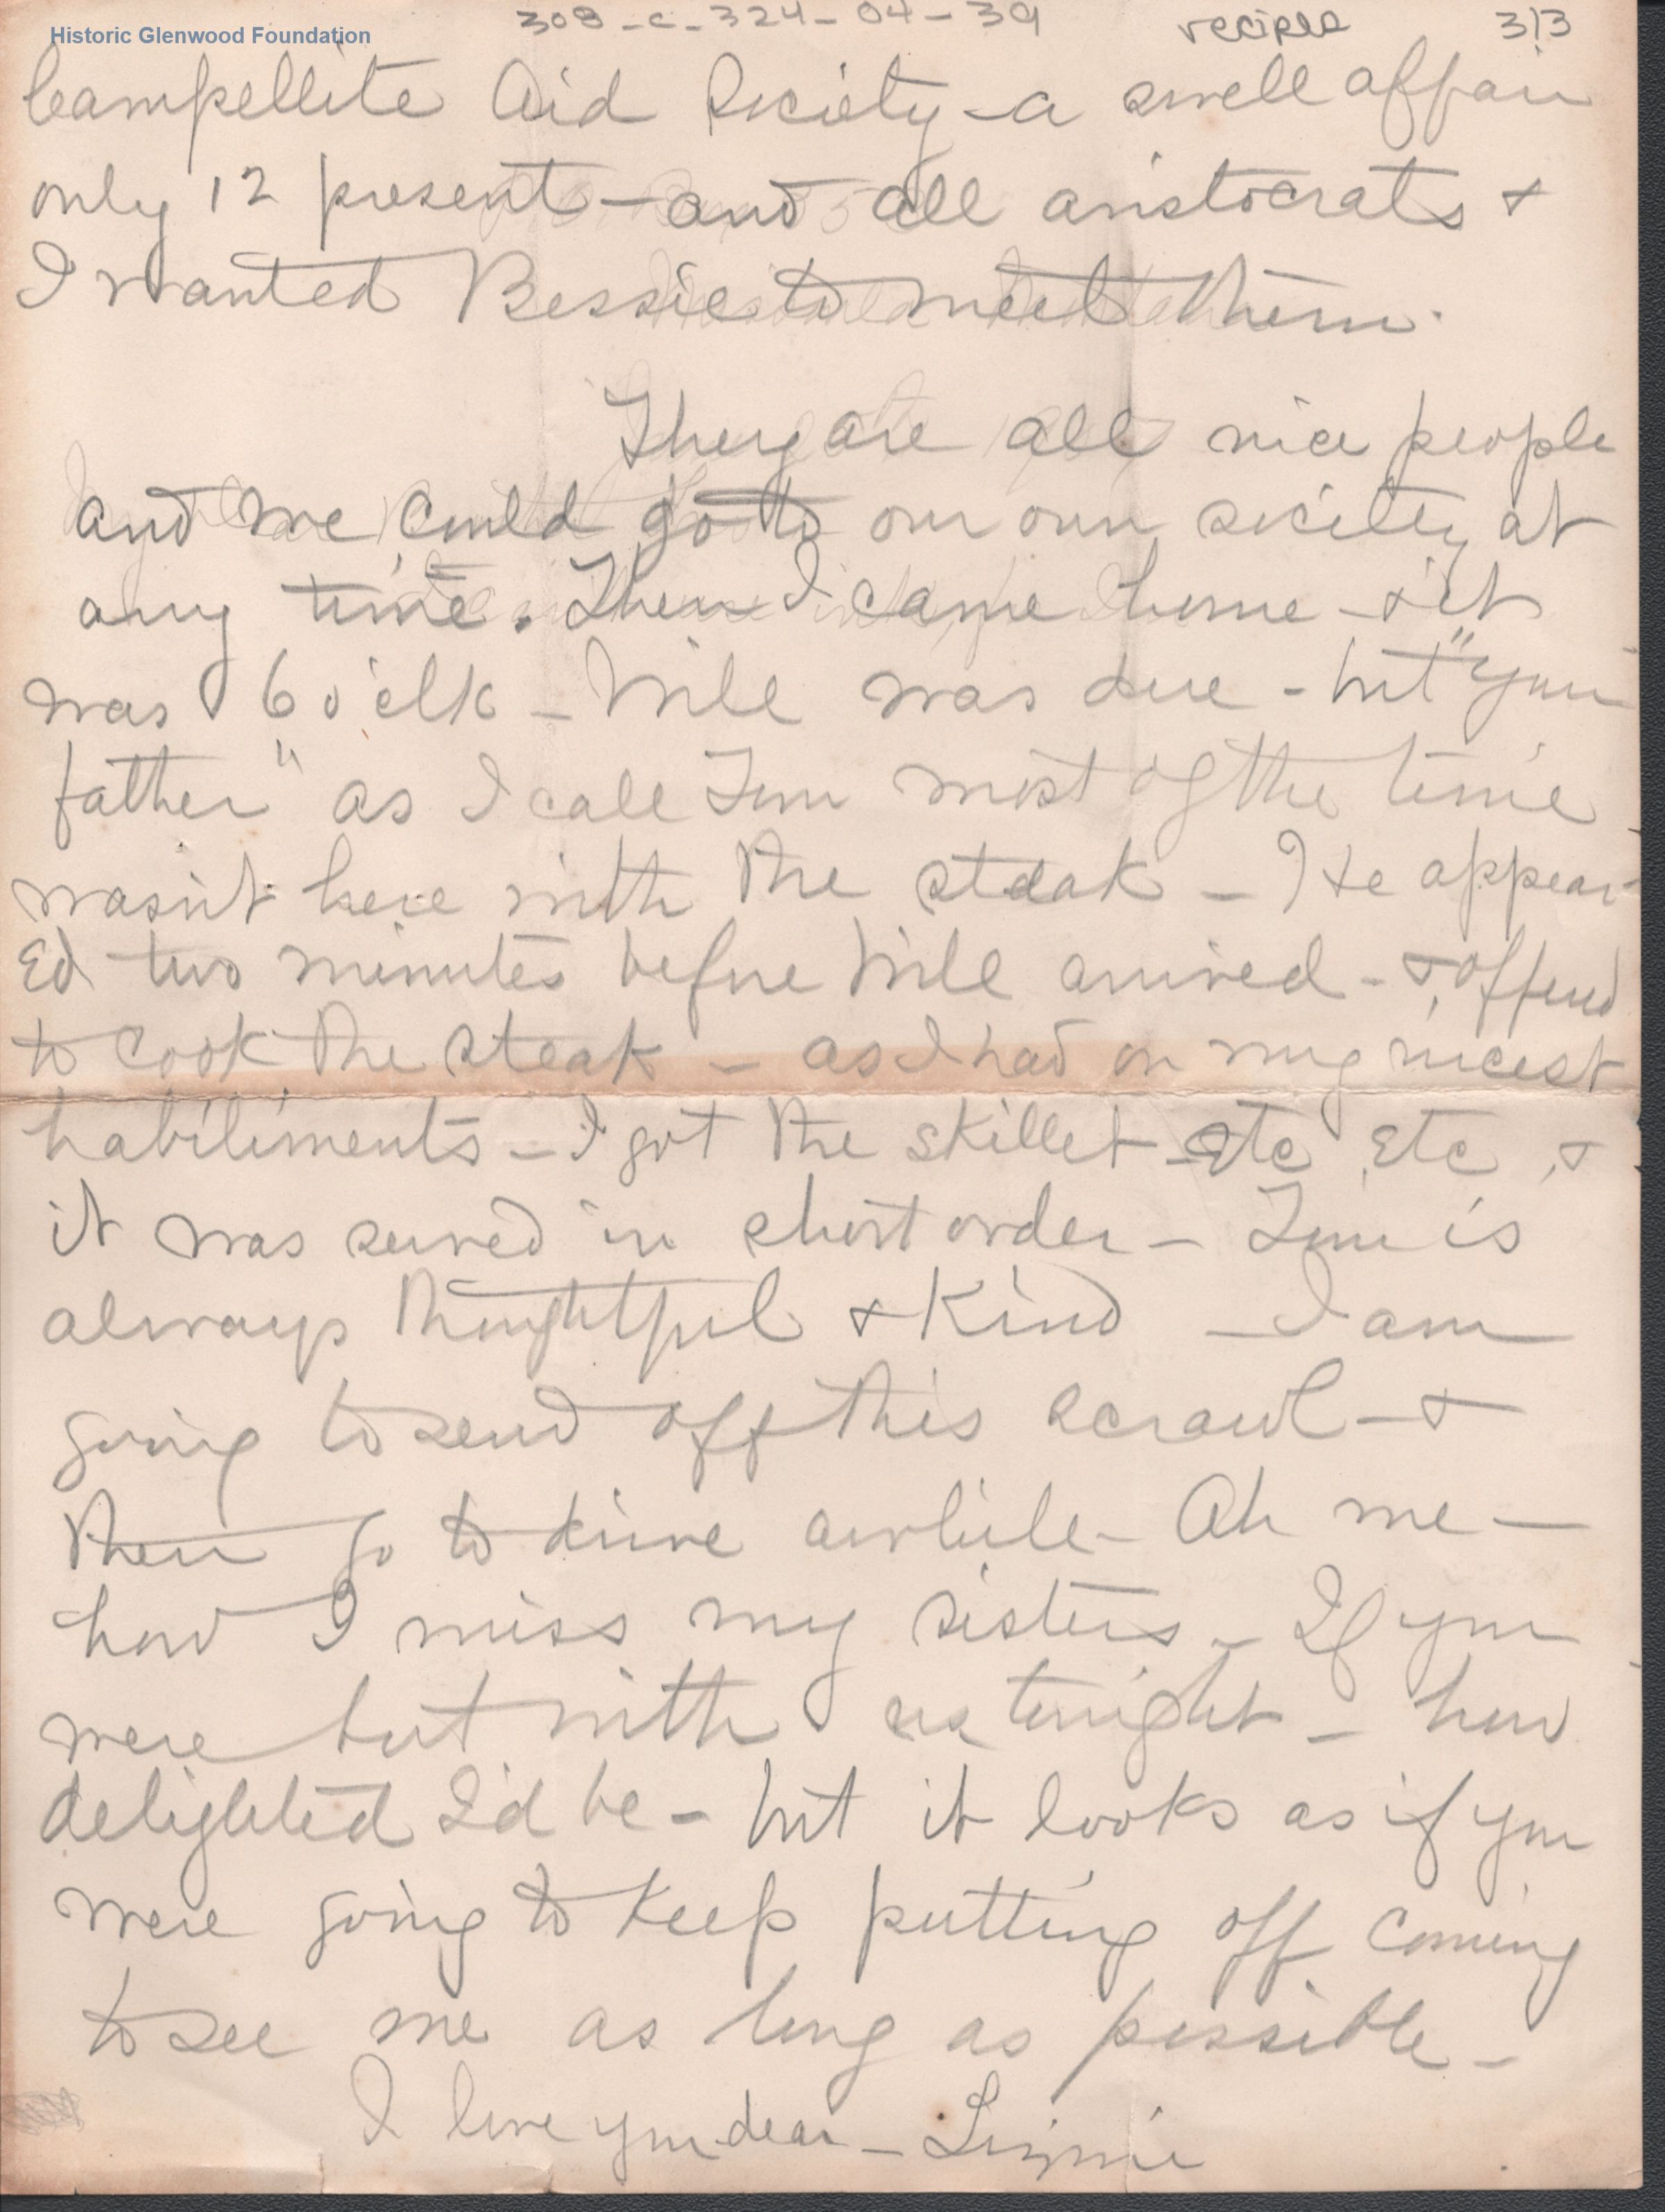 308-C-324-04-39 recipes 3/3
Historic Glenwood Foundation
Campellite Aid Society - a swell affair
only 12 present - and all aristocrats +
I wanted Bessie to meet them.
They are all nice people
and we could go to our own society at
any time. Then I came home - + it
was 6 o'clk - Will was due - but "your
father" as I call Tom most of the time
wasn't here with the steak - He appear-
ed two minutes before Will arrived - + offered
to cook the steak - as I had on my nicest
habiliments - I got the skillet - etc etc +
it was served in short order - Tom is
always thoughtful + kind - I am
going to send off this scrawl - +
then go to drive awhile - Ah me -
how I miss my sisters - If you
were but with us tonight - how
delighted I'd be - but it looks as if you
were going to keep putting off coming
to see me as long as possible -
I love you dear - Linnie